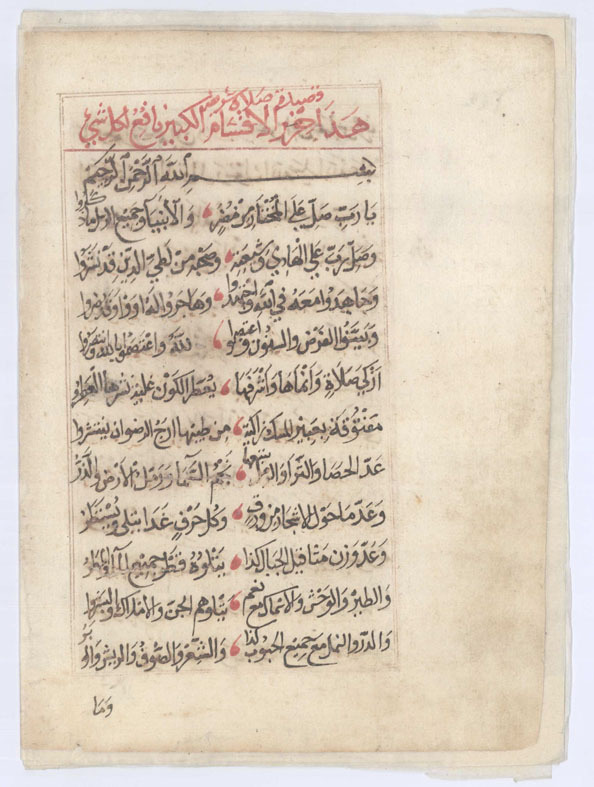 قصيدة صلاة
هذا حزب الاقسام الكبير نافع لكل شي
بسم الله الرحمن الرحيم
يا رب صل على المختار من مضر والأنبيا وجميع الرسل ما ذكروا
وصل رب على الهادي وشيعته وصحبه من لطي الدين قد نشروا
وجاهدوا معه في الله واجتهدوا وهاجروا اووا وقد نصروا
وبينوا الفرض والمسنون واعتصبوا لله واعتصموا بالله وانتصروا
ازكى صلاة وانماها واشرفها يعطر الكون نشرها العطر
مفتوقة بعبير المسك زاكية من طيبها ارج الرضوان ينتشر
عد الحصا والثرا يتبعها نجم السما الارض والمدر
وعد ما حوت الاشجار من ورق وكل حرف غدا يتلى ويستطر
وعد وزن مثاقيل الجبال كذا يتلوه قطر جميع الماء والمطر
والطير والوحش والاسماك مع نعم يتلوهم الجن والاملاك والبشر
والذر والنمل مع جميع الحبوب كذا والشعر والصوف والريش والوبر
وما